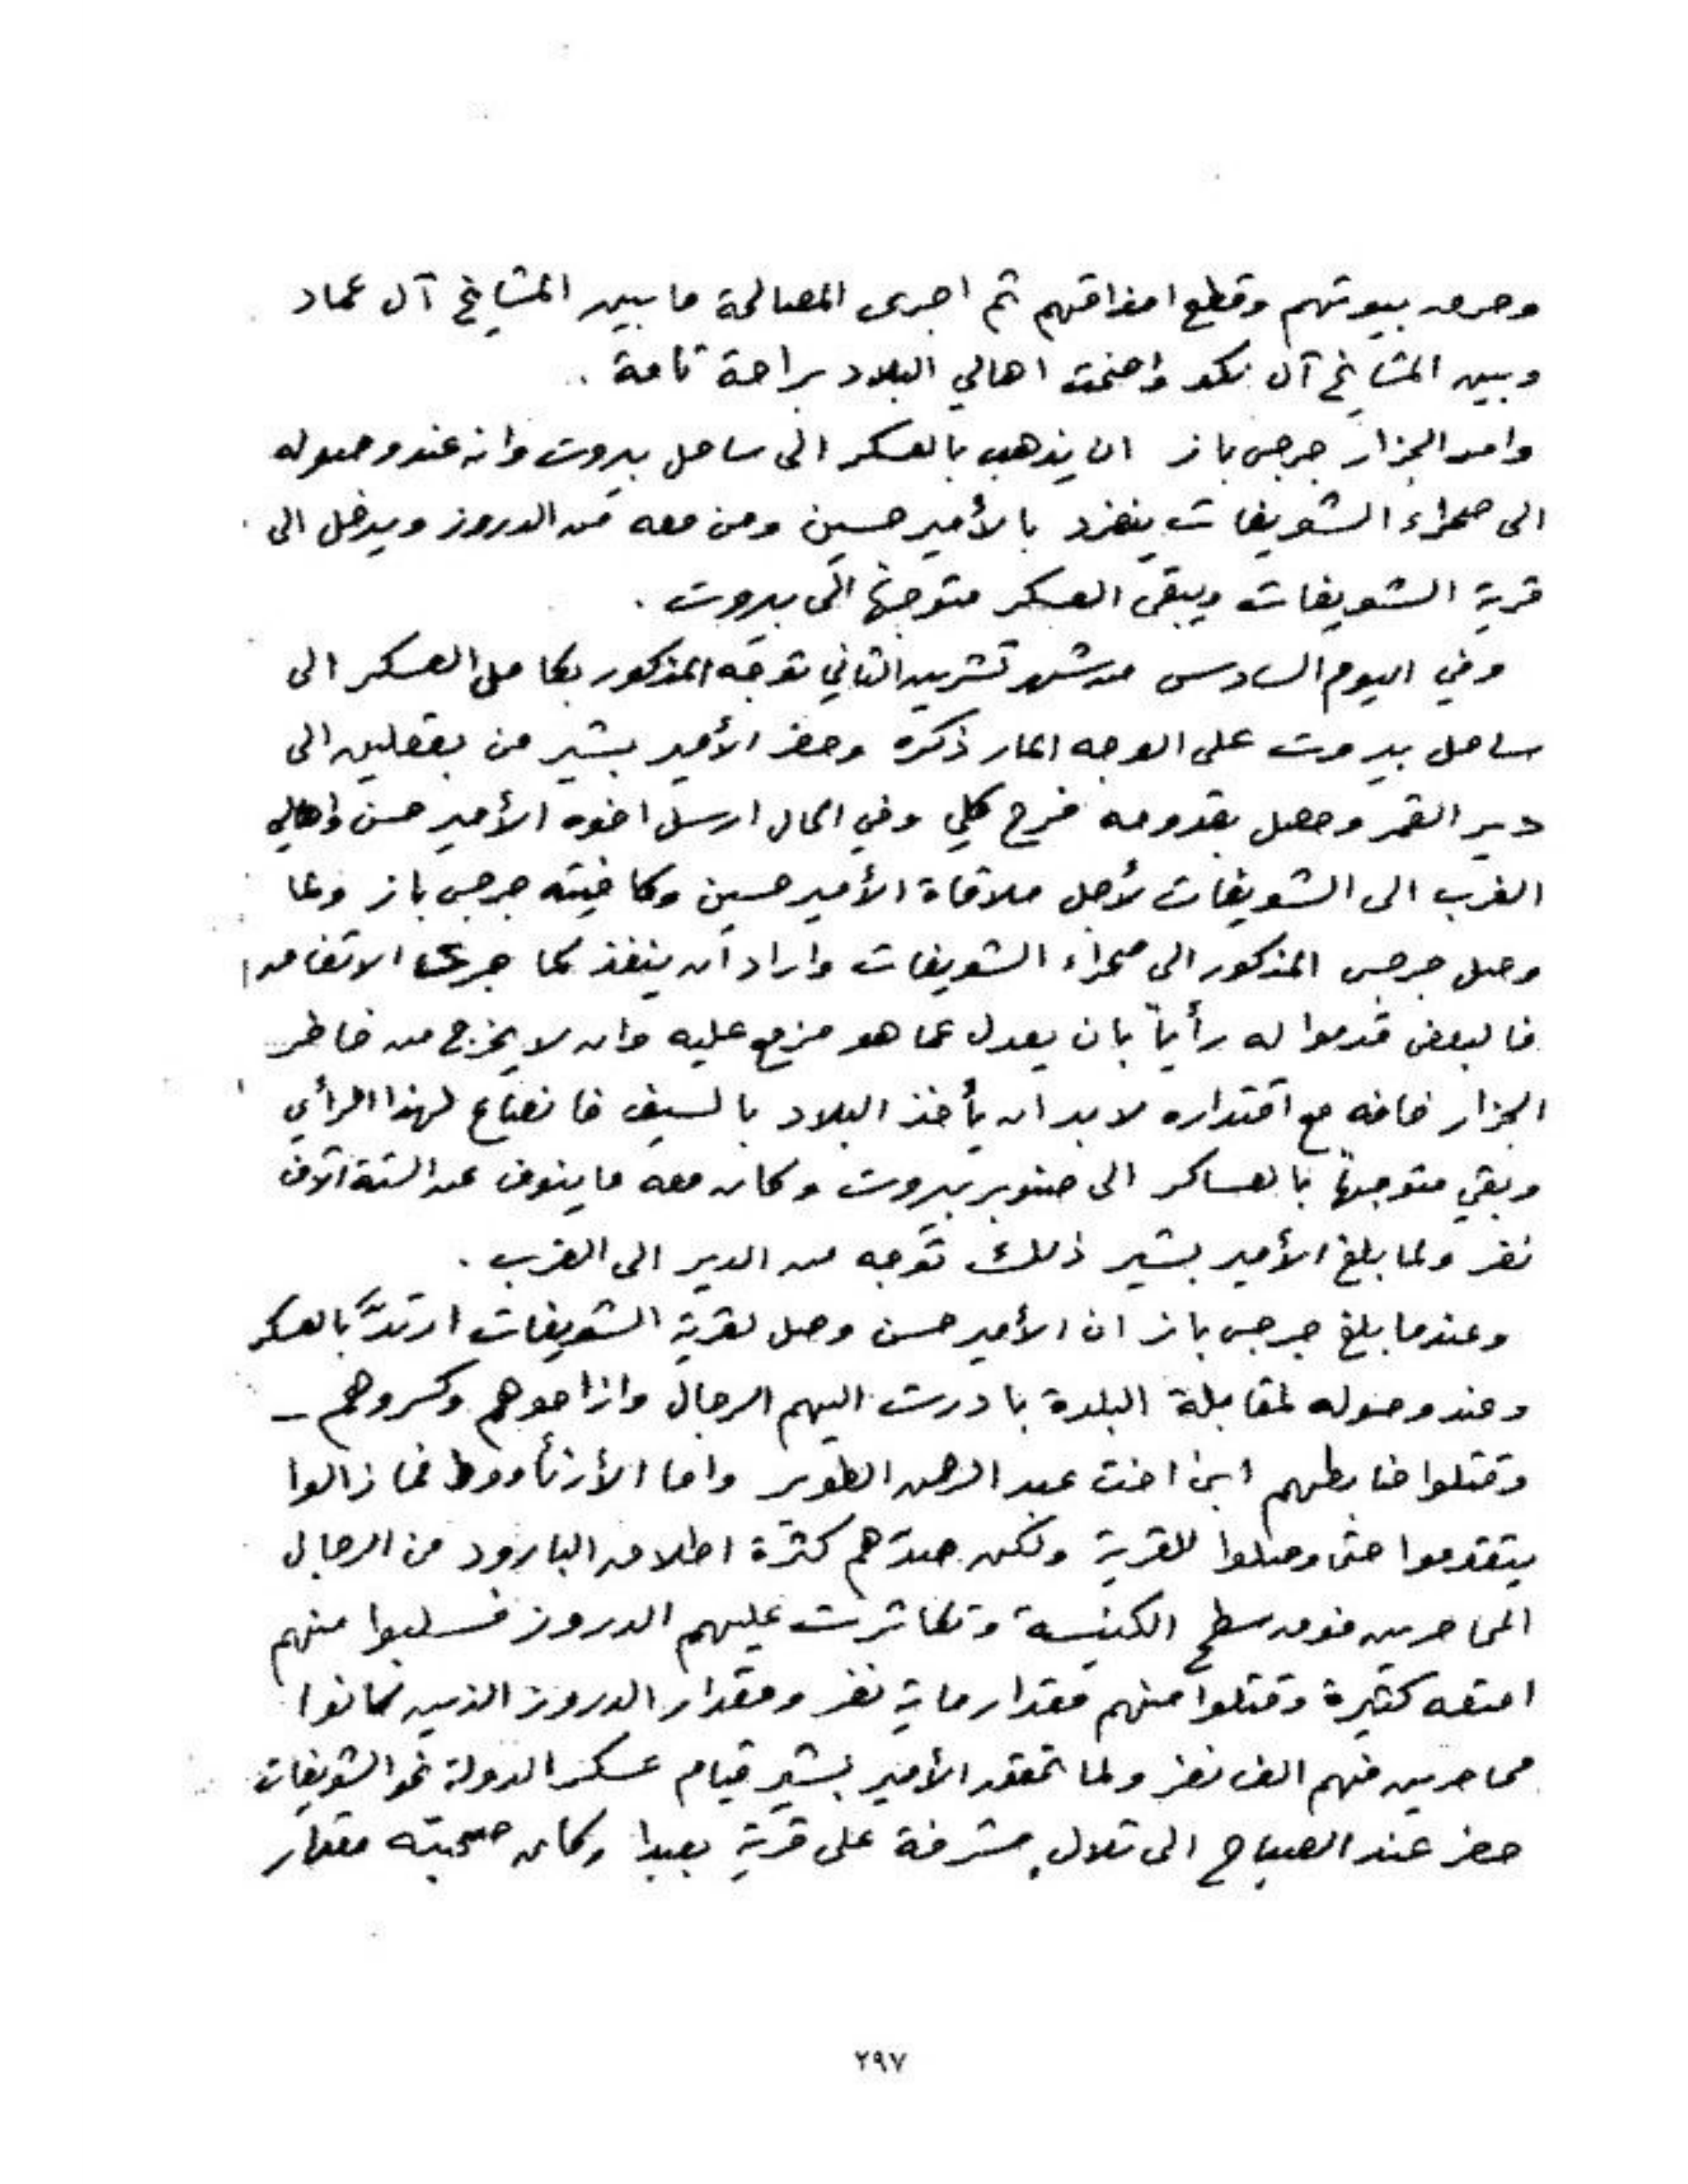 وحرق بيوتهم وقطع ارزاقهم ثم اجرى المصالحة ما بين المشايخ آل عماد
وبين المشايخ آل نكد واضحت اهالي البلاد براحة تامة .
وامر الجزار جرجس باز ان يذهب بالعسكر الى ساحل بيروت وانه عند وصوله
الى صحراء الشويفات ينفرد بالأمير حسين ومن معه من الدروز ويدخل الى
قرية الشويفات ويبقى العسكر متوجهاً الى بيروت .
وفي اليوم السادس من شهر تشرين الثاني توجه المذكور بكامل العسكر الى
ساحل بيروت على الوجه المار ذكره وحضر الأمير بشير من بعقلين الى
دير القمر وحصل بقدومه فرح كلي وفي الحال ارسل اخوه الأمير حسن واهالي
الغرب الى الشويفات لأجل ملاقاة الأمير حسين وكاخيته جرجس باز ولما
وصل جرجس المذكور الى صحراء الشويفات واراد ان ينفذ كما جرى الاتفاق
فالبعض قدموا له رأياً بان يعدل عما هو مزمع عليه وان لا يخرج من خاطر
الجزار فانه مع اقتداره لا بد ان يأخذ البلاد بالسيف فانصاع لهذا الرأي
وبقي متوجهاً بالعساكر الى صنوبر بيروت وكان معه ما ينوف عن الستة آلاف
نفر ولما بلغ الأمير بشير ذلك توجه من الدير الى الغرب .
وعندما بلغ جرجس باز ان الأمير حسن وصل لقرية الشويفات ارتدَّ بالعسكر
وعند وصوله لمقابلة البلدة بادرت اليهم الرجال وازاحوهم وكسروهم –
وقتلوا ضابطهم ابن اخت عبد الرحمن الطوير واما الأرنأووط فما زالوا
يتقدموا حتى وصلوا للقرية ولكن صدّهم كثرة اطلاق البارود من الرجال
المحاصرين فوق سطح الكنيسة وتكاثرت عليهم الدروز فسلبوا منهم
امتعه كثيرة وقتلوا منهم مقدار ماية نفر ومقدار الدروز الذين كانوا
محاصرين منهم الف نفر ولما تحقق الأمير بشير قيام عسكر الدولة نحو الشويفات
حضر عند الصباح الى تلال مشرفة على قرية بعبدا وكان صحبته مقدار
٢٩٧